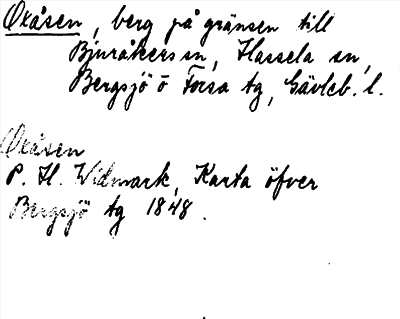 Oxåsen, berg på gränsen till
Bjuråkers sn, Hassela sn,
Bergsjö o Forsa tg, Gävleb. l.
Oxåsen
P. H. Widmark, Karta öfver
Bergsjö tg 1848.